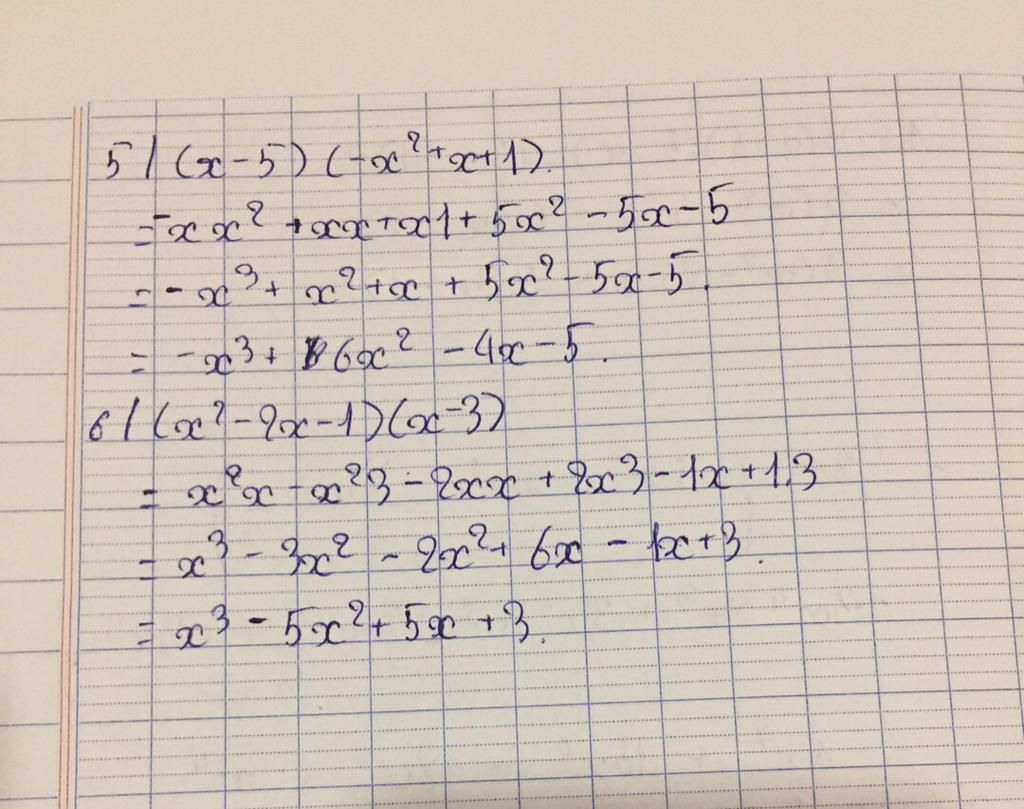 5/ (x-5)(-x²+x+1).
= -xx² + xx + x1 + 5x² - 5x - 5
= -x³ + x² + x + 5x² - 5x - 5.
= -x³ + 6x² - 4x - 5.
6/ (x²-2x-1)(x-3)
= x²x - x²3 - 2xx + 2x3 - 1x + 1.3
= x³ - 3x² - 2x² + 6x - 1x + 3.
= x³ - 5x² + 5x + 3.